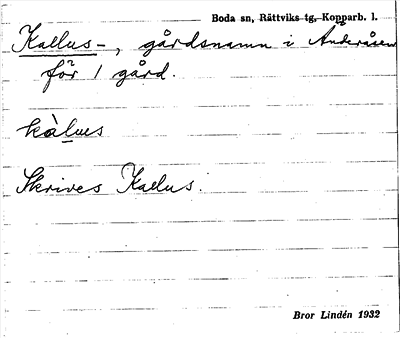 Boda sn, Rättviks tg, Kopparb. l.
Kallus-, gårdsnamn i Anderåsen
för 1 gård.
kàlus
Skrives Kallus.
Bror Lindén 1932